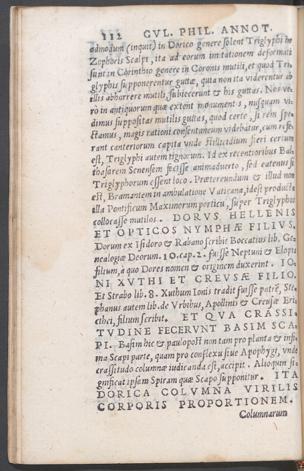 112 GVL. PHIL. ANNOT.
admodum (inquit) in Dorico genere solent Triglyphi in
Zophoris Scalpi, ita ad eorum imitationem deformati
sunt in Corinthio genere in Coronis mutili, et quod Tri-
glyphis supponerentur guttæ, quia non ita viderentur ab
illis abhorrere mutili, subiecerunt & his guttas. Nos ve-
rò in antiquorum quæ extent monumentis, nusquam vi-
dimus suppositas mutilis guttas, quod certe, si rem spe-
ctamus, magis rationi consentaneum videbatur, cum referant
canteriorum capita unde stillicidium fieri certum
est, Triglyphi autem tignorum. Id ex recentioribus Bal-
thasarem Senensem fecisse animaduerto, sed eatenus si
Triglyphorum essent loco. Prætereundum & illud non
est, Bramantem in ambulatione Vaticana, idest producta
illa Pontificum Maximorum porticu, super Triglyphos
collocasse mutilos. DORVS HELLENIS
ET OPTICOS NYMPHÆ FILIVS.
Dorum ex Isidoro & Rabano scribit Boccatius lib. Ge-
nealogiæ Deorum. 10. cap. 2. fuisse Neptuni & Elopis
filium, à quo Dores nomen & originem duxerint. IO-
NI XVTHI ET CREVSÆ FILIO.
Et Strabo lib. 8. Xuthum Ionis tradit fuisse patrē, Ste-
phanus autem lib. de Vrbibus, Apollinis & Creusæ Eri-
cthei, filium scribit. ET QVA CRASSI-
TVDINE FECERVNT BASIM SCA-
PI. Basim hic & paulopost non tam pro planta & infi-
ma Scapi parte, quam pro conflexu siue Apophygi, unde
crassitudo columnæ iudicanda est, accipit. Alioquin si-
gnificat ipsam Spiram quæ Scapo supponitur. ITA
DORICA COLVMNA VIRILIS
CORPORIS PROPORTIONEM.
Columnarum